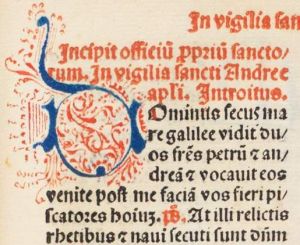 In vigilia san
Incipit officiū ꝓpriū sancto-
rum. In vigilia sancti Andree
apľi. Introitus.
Dominus secus ma
re galilee vidit du-
os frēs petrū ⁊ an-
dreā ⁊ vocauit eos
venite post me faciā vos fieri pi-
scatores hoīuʒ. p̄s. At illi relictis
rhetibus ⁊ naui secuti sunt dūm